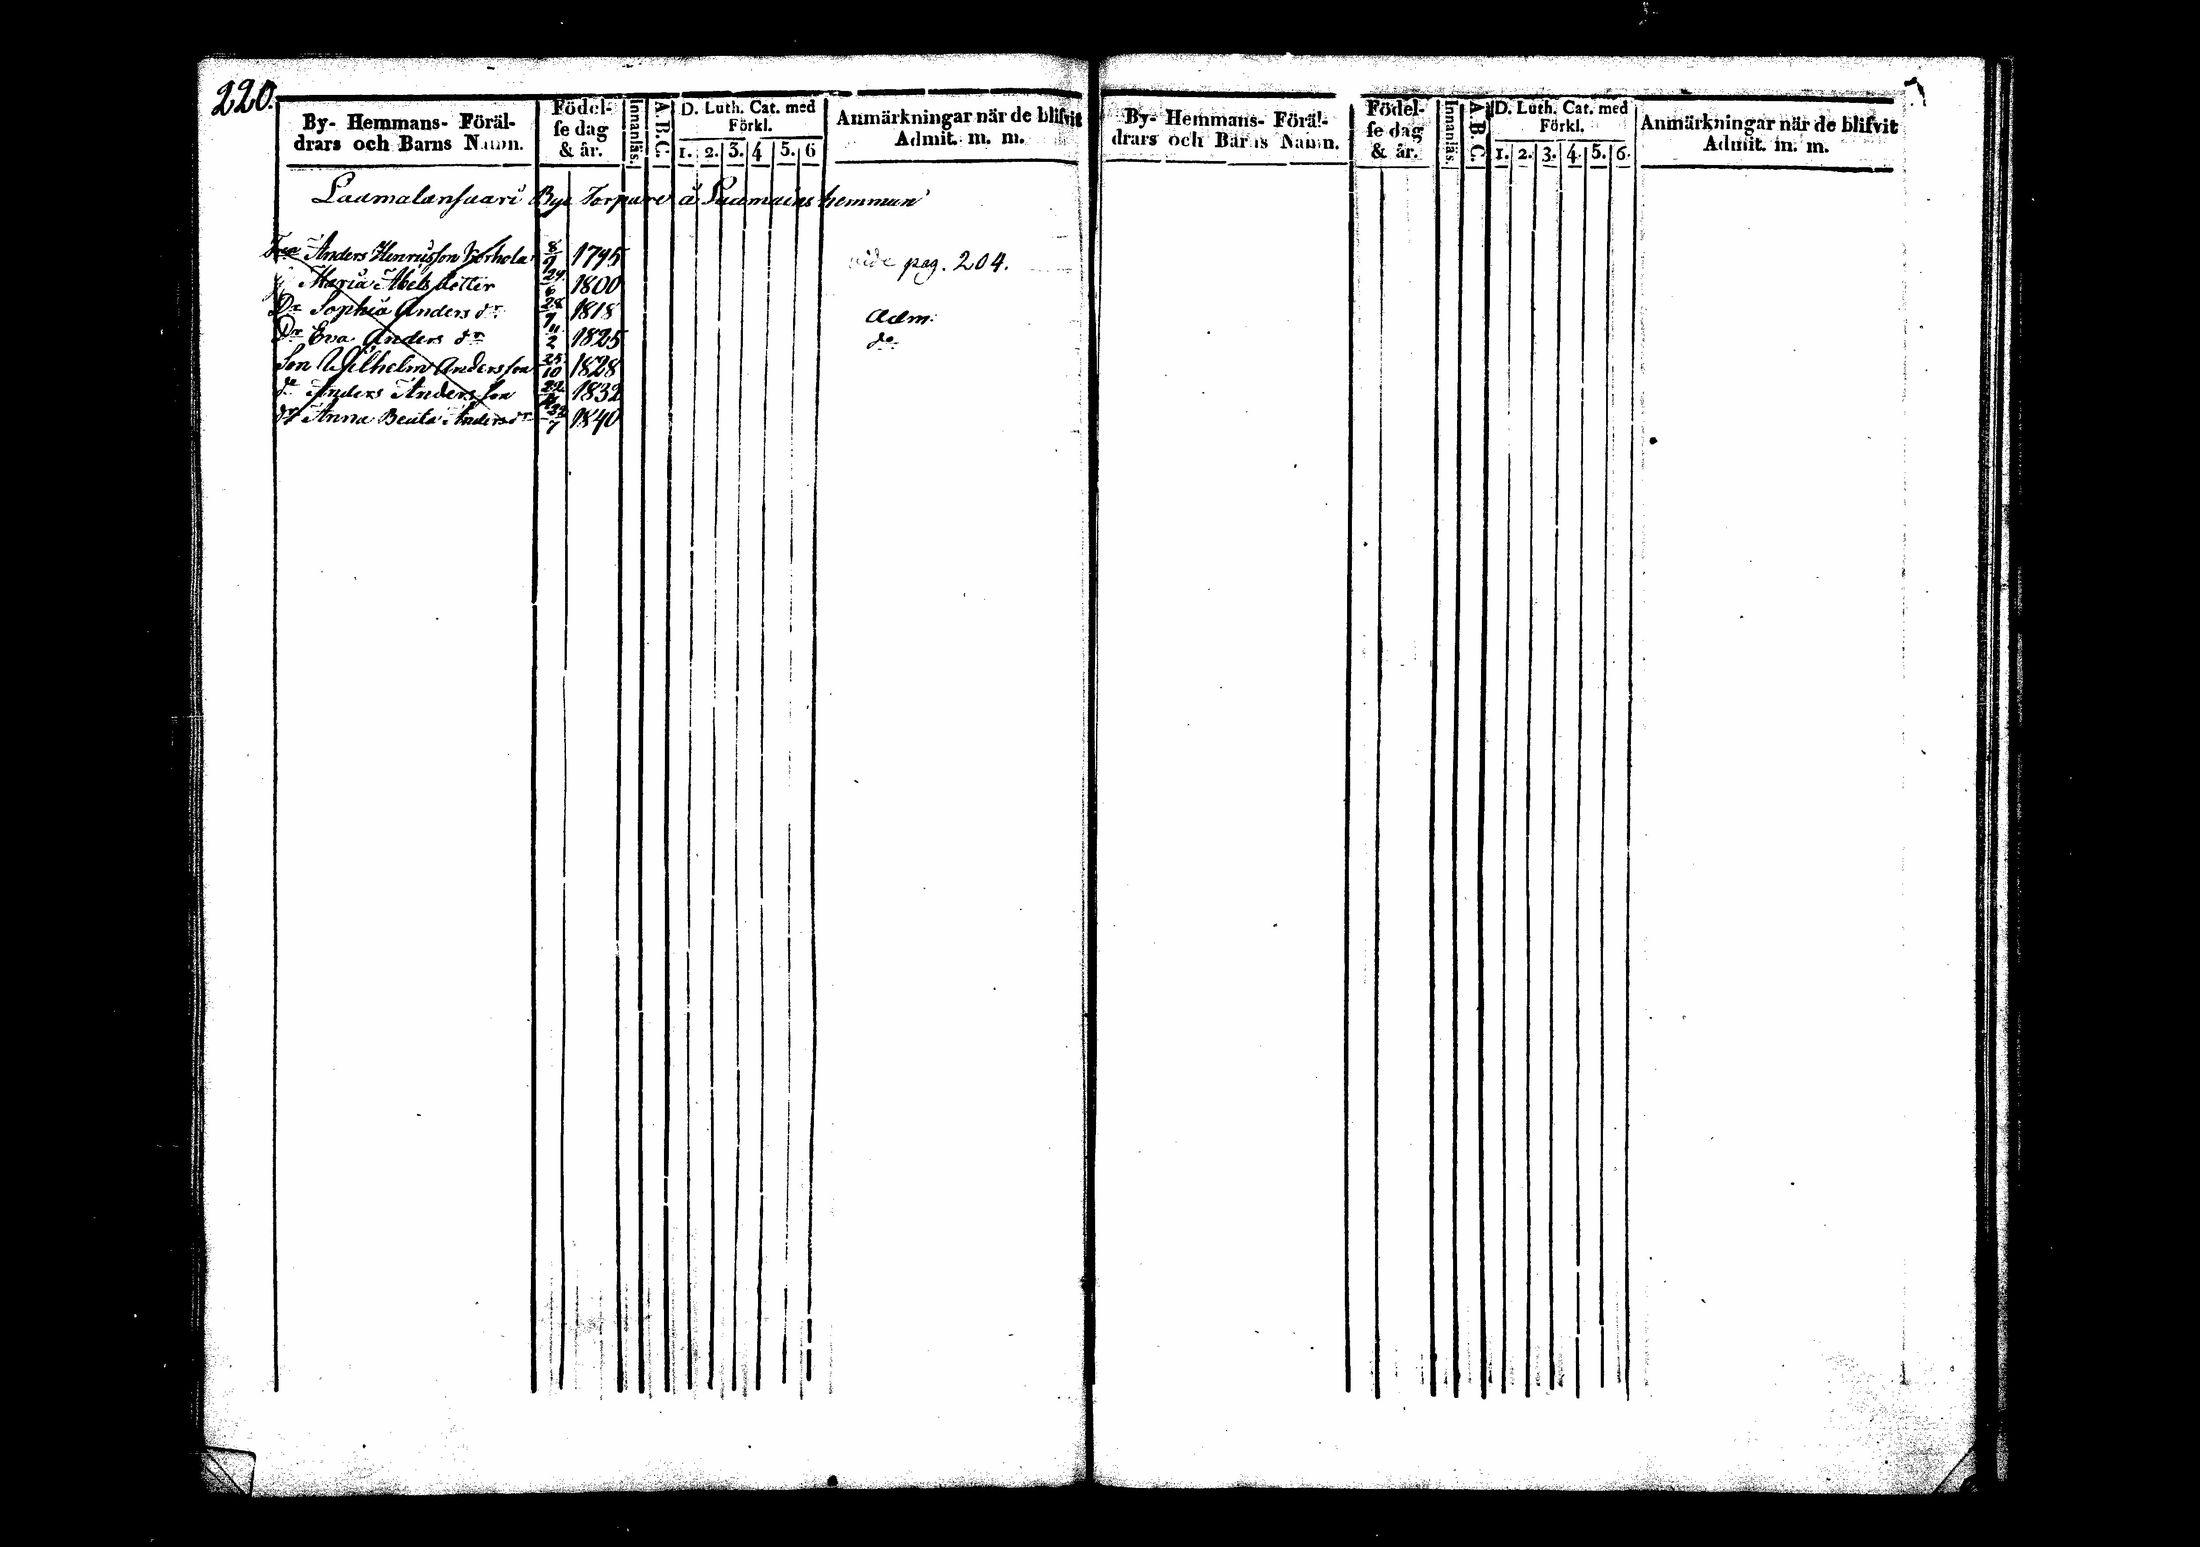 220.
By- Hemmans- Föräl-
drars och Barns Namn.
Födel-
se dag
& år.
Innanläs.
A. B. C.
D. Luth. Cat. med
Förkl.
1. 2. 3. 4 5. 6
Anmärkningar när de blifvit
Admit. m. m.
Laumalansaari By Torpare å hemman
Anders Henricsson 8/9 1795 vide pag. 204.
Maria Abelsdotter 24/6 1800
Dr Sophia Anders dr 28/7 1818 Adm:
Dr Eva Anders dr 11/2 1825 do
Son Wilhelm Andersson 25/10 1828
do Anders Andersson 1832
dr Anna Beata Anders dr 1840
By- Hemmans- Föräl-
drars och Barns Namn.
Födel-
se dag
& år.
Innanläs.
A. B. C.
D. Luth. Cat. med
Förkl.
1. 2. 3. 4. 5. 6.
Anmärkningar när de blifvit
Admit. m. m.